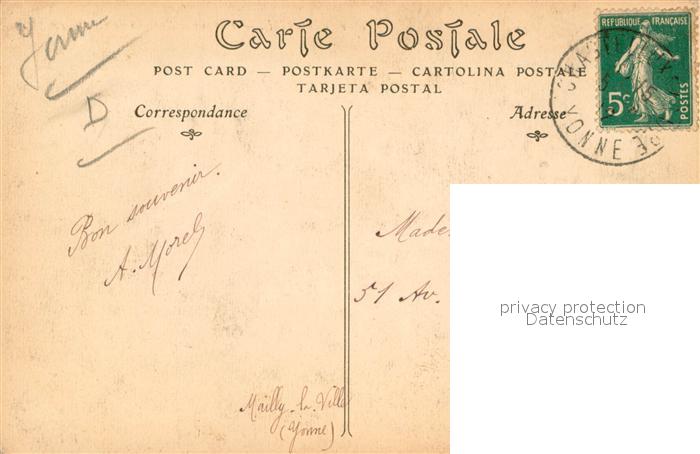 Yonne
D
Carte Postale
POST CARD — POSTKARTE — CARTOLINA POSTALE
TARJETA POSTAL
Correspondance
Adresse
REPUBLIQUE FRANÇAISE
5c
POSTES
YONNE
Bon souvenir.
A. Morel
Made
51 Av.
Mailly-la-Ville
(Yonne)
privacy protection
Datenschutz